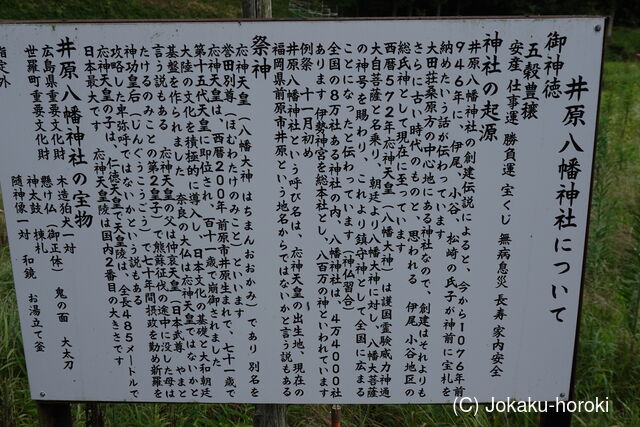 井原八幡神社について
御神徳
五穀豊穣
安産 仕事運 勝負運 宝くじ 無病息災 長寿 家内安全
神社の起源
井原八幡神社の創建伝説によると、今から1076年前
946年に 伊尾、小谷、松崎の氏子が神前に宝札を
納めたいう話が伝わっています
太田荘桑原方の中心地にある神社なので、創建はそれよりも
さらに古い時代のものと、思われる 伊尾 小谷地区の
総氏神として現在に至っています
西暦572年応神天皇(八幡大神)は護国霊験威力神通
大自菩薩と名乗り、朝廷より八幡大神に対し、八幡大菩薩
の神号を賜わり、これより鎮守神として全国に広まる
ことになったと伝わっています(神仏習合)
全国の8万社ある神社の内、八幡神社は、4万4000社
あります 伊勢神宮を総本社とし、八百万の神といわれています
例祭 十一月初め
井原八幡神社という呼び名は、応神天皇の出生地、現在の
福岡県前原市井原という地名からではないかと言う説もある
祭神
応神天皇(八幡大神 はちまんおおかみ)であり 別名を
誉田別尊(ほむわたけのみこと)
応神天皇は、西暦200年前原市井原生まれで、七十一歳で
第十五代天皇に即位され、百十一歳で崩御されました
大陸の文化を積極的に導入し、日本文化の基礎と大和朝廷
基盤を作られました 奈良の大仏は応神天皇ではないかと
言う説もある 応神天皇の父は仲哀天皇(日本武尊 やまと
たけるのみことの第2皇子)で熊蘇征伐の途中に没 母は
神功皇后(じんぐうこうごう)で七十年間摂政を勤め新羅を
攻略した卑弥呼ではないかという説もある
応神天皇の子は、仁徳天皇で天皇陵は、全長485メートルで
日本最大です 応神天皇陵は国内2番目の大きさです
井原八幡神社の宝物
広島県重要文化財 木造狛犬一対
世羅町重要文化財 懸け仏(御正体) 鬼の面 大太刀
神太鼓 棟札
随神像一対 和鏡 お湯立て釜
指定外
(C) Jokaku-horoki